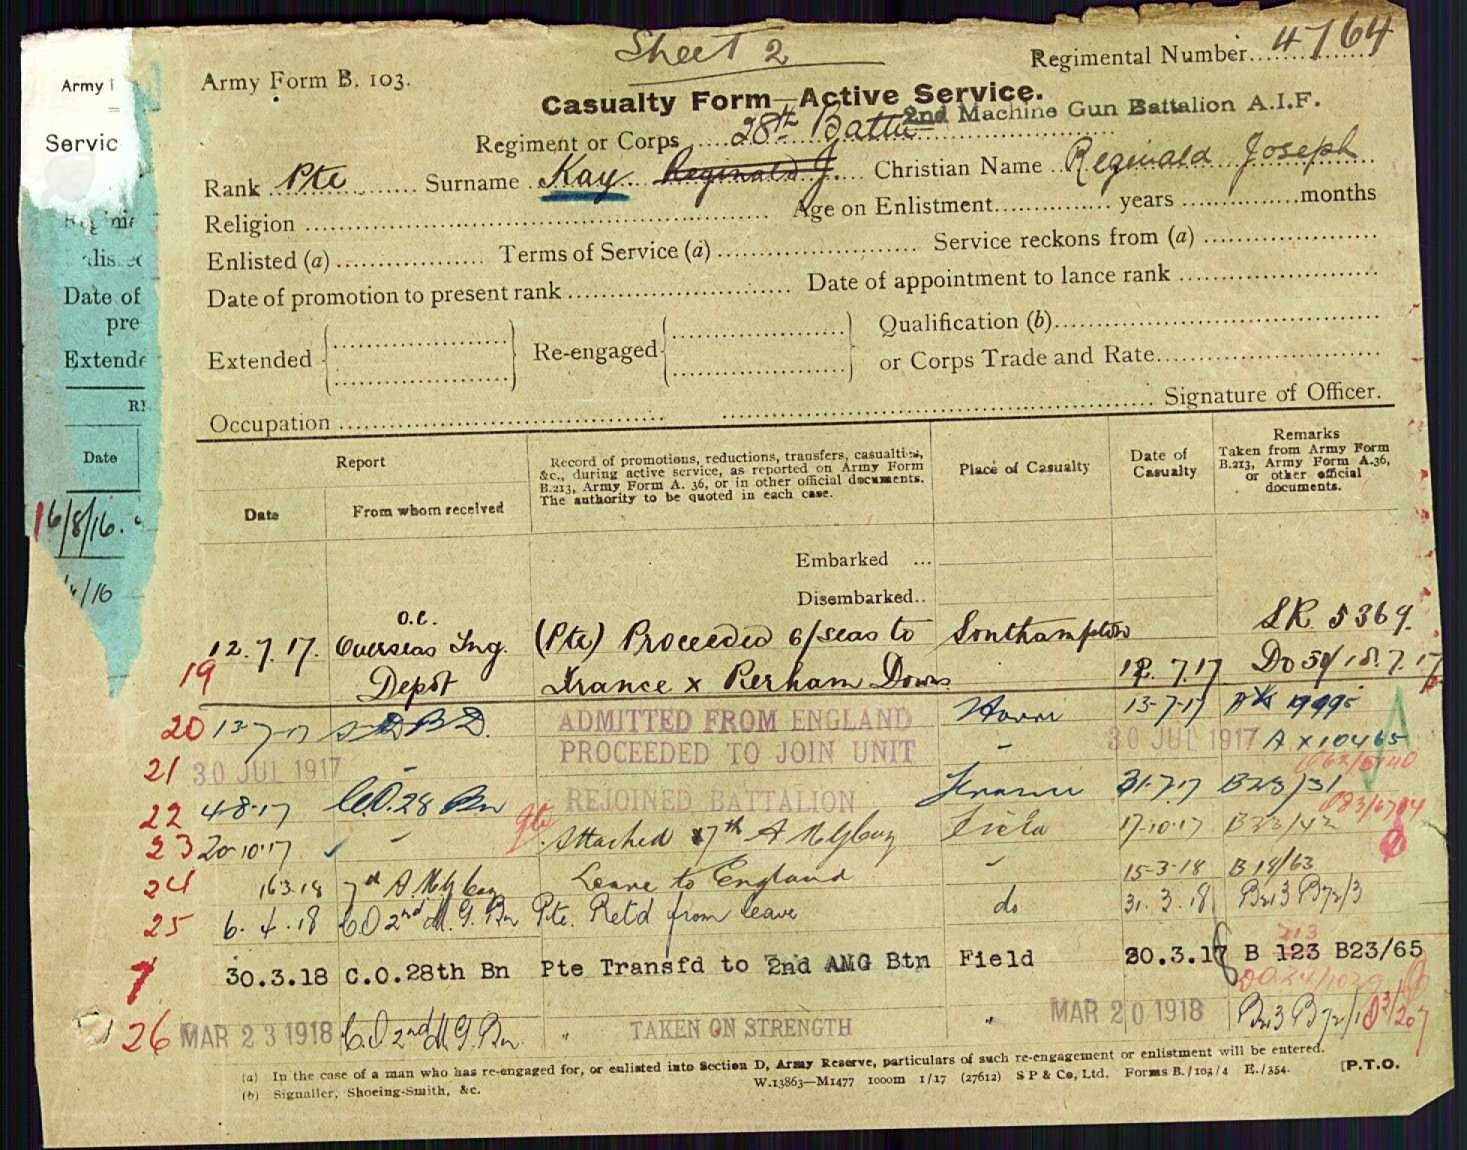 Sheet 2
Army Form B. 103.
Regimental Number 4764
Casualty Form—Active Service.
Regiment or Corps 28th Battn 2nd Machine Gun Battalion A.I.F.
Rank Pte Surname Kay Reginald J. Christian Name Reginald Joseph
Religion Age on Enlistment years months
Enlisted (a) Terms of Service (a) Service reckons from (a)
Date of promotion to present rank Date of appointment to lance rank
Extended Re-engaged Qualification (b)
or Corps Trade and Rate
Occupation Signature of Officer.
Report
Date From whom received
Record of promotions, reductions, transfers, casualties,
&c., during active service, as reported on Army Form
B.213, Army Form A. 36, or in other official documents.
The authority to be quoted in each case.
Place of Casualty
Date of
Casualty
Remarks
Taken from Army Form
B.213, Army Form A.36,
or other official
documents.
Embarked ...
Disembarked..
19 12.7.17. O.C. Overseas Tng. Depôt (Pte) Proceeded o/seas to France x Perham Downs Southampton 12.7.17 SR 5369. Do 51/18.7.17
20 13-7-17 ADMITTED FROM ENGLAND 13-7-17
21 30 JUL 1917 PROCEEDED TO JOIN UNIT 30 JUL 1917 A x 10465
22 4-8-17 C.O. 28 Bn REJOINED BATTALION France 31-7-17 B213/31
23 20-10-17 Attached 7th A M G Coy Field 17-10-17
24 16.3.18 7th A.M.G Coy Leave to England 15-3-18 B 18/63
25 6.4.18 CO 2nd M.G. Bn Pte. Retd from leave do 31.3.18 B213 B72/3
30.3.18 C.O.28th Bn Pte Transfd to 2nd AMG Btn Field 30.3.18 B 123 B23/65
213
26 MAR 23 1918 CO 2nd M.G. Bn " TAKEN ON STRENGTH " MAR 20 1918
(a) In the case of a man who has re-engaged for, or enlisted into Section D, Army Reserve, particulars of such re-engagement or enlistment will be entered.
(b) Signaller, Shoeing-Smith, &c.
W.13863—M1477 1000m 1/17 (27612) S P & Co, Ltd. Forms B./103/4 E./354.
[P.T.O.
Army
Servic
Date of
pre
Extende
Date
16/8/16.
/16